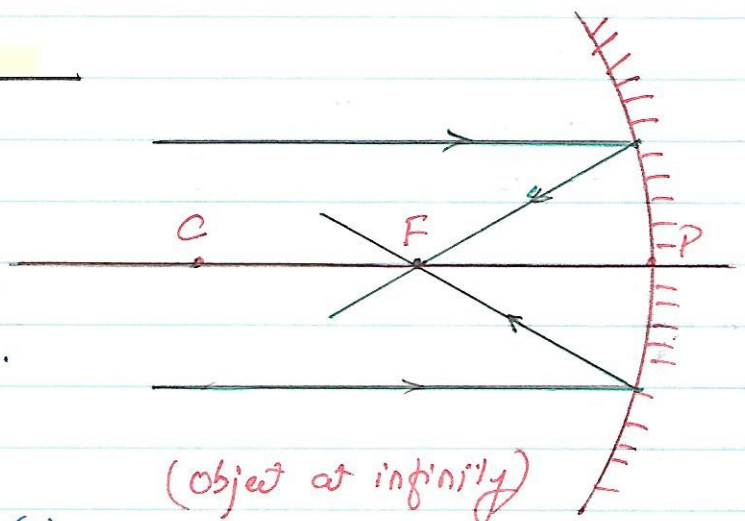 C F P
(object at infinity)